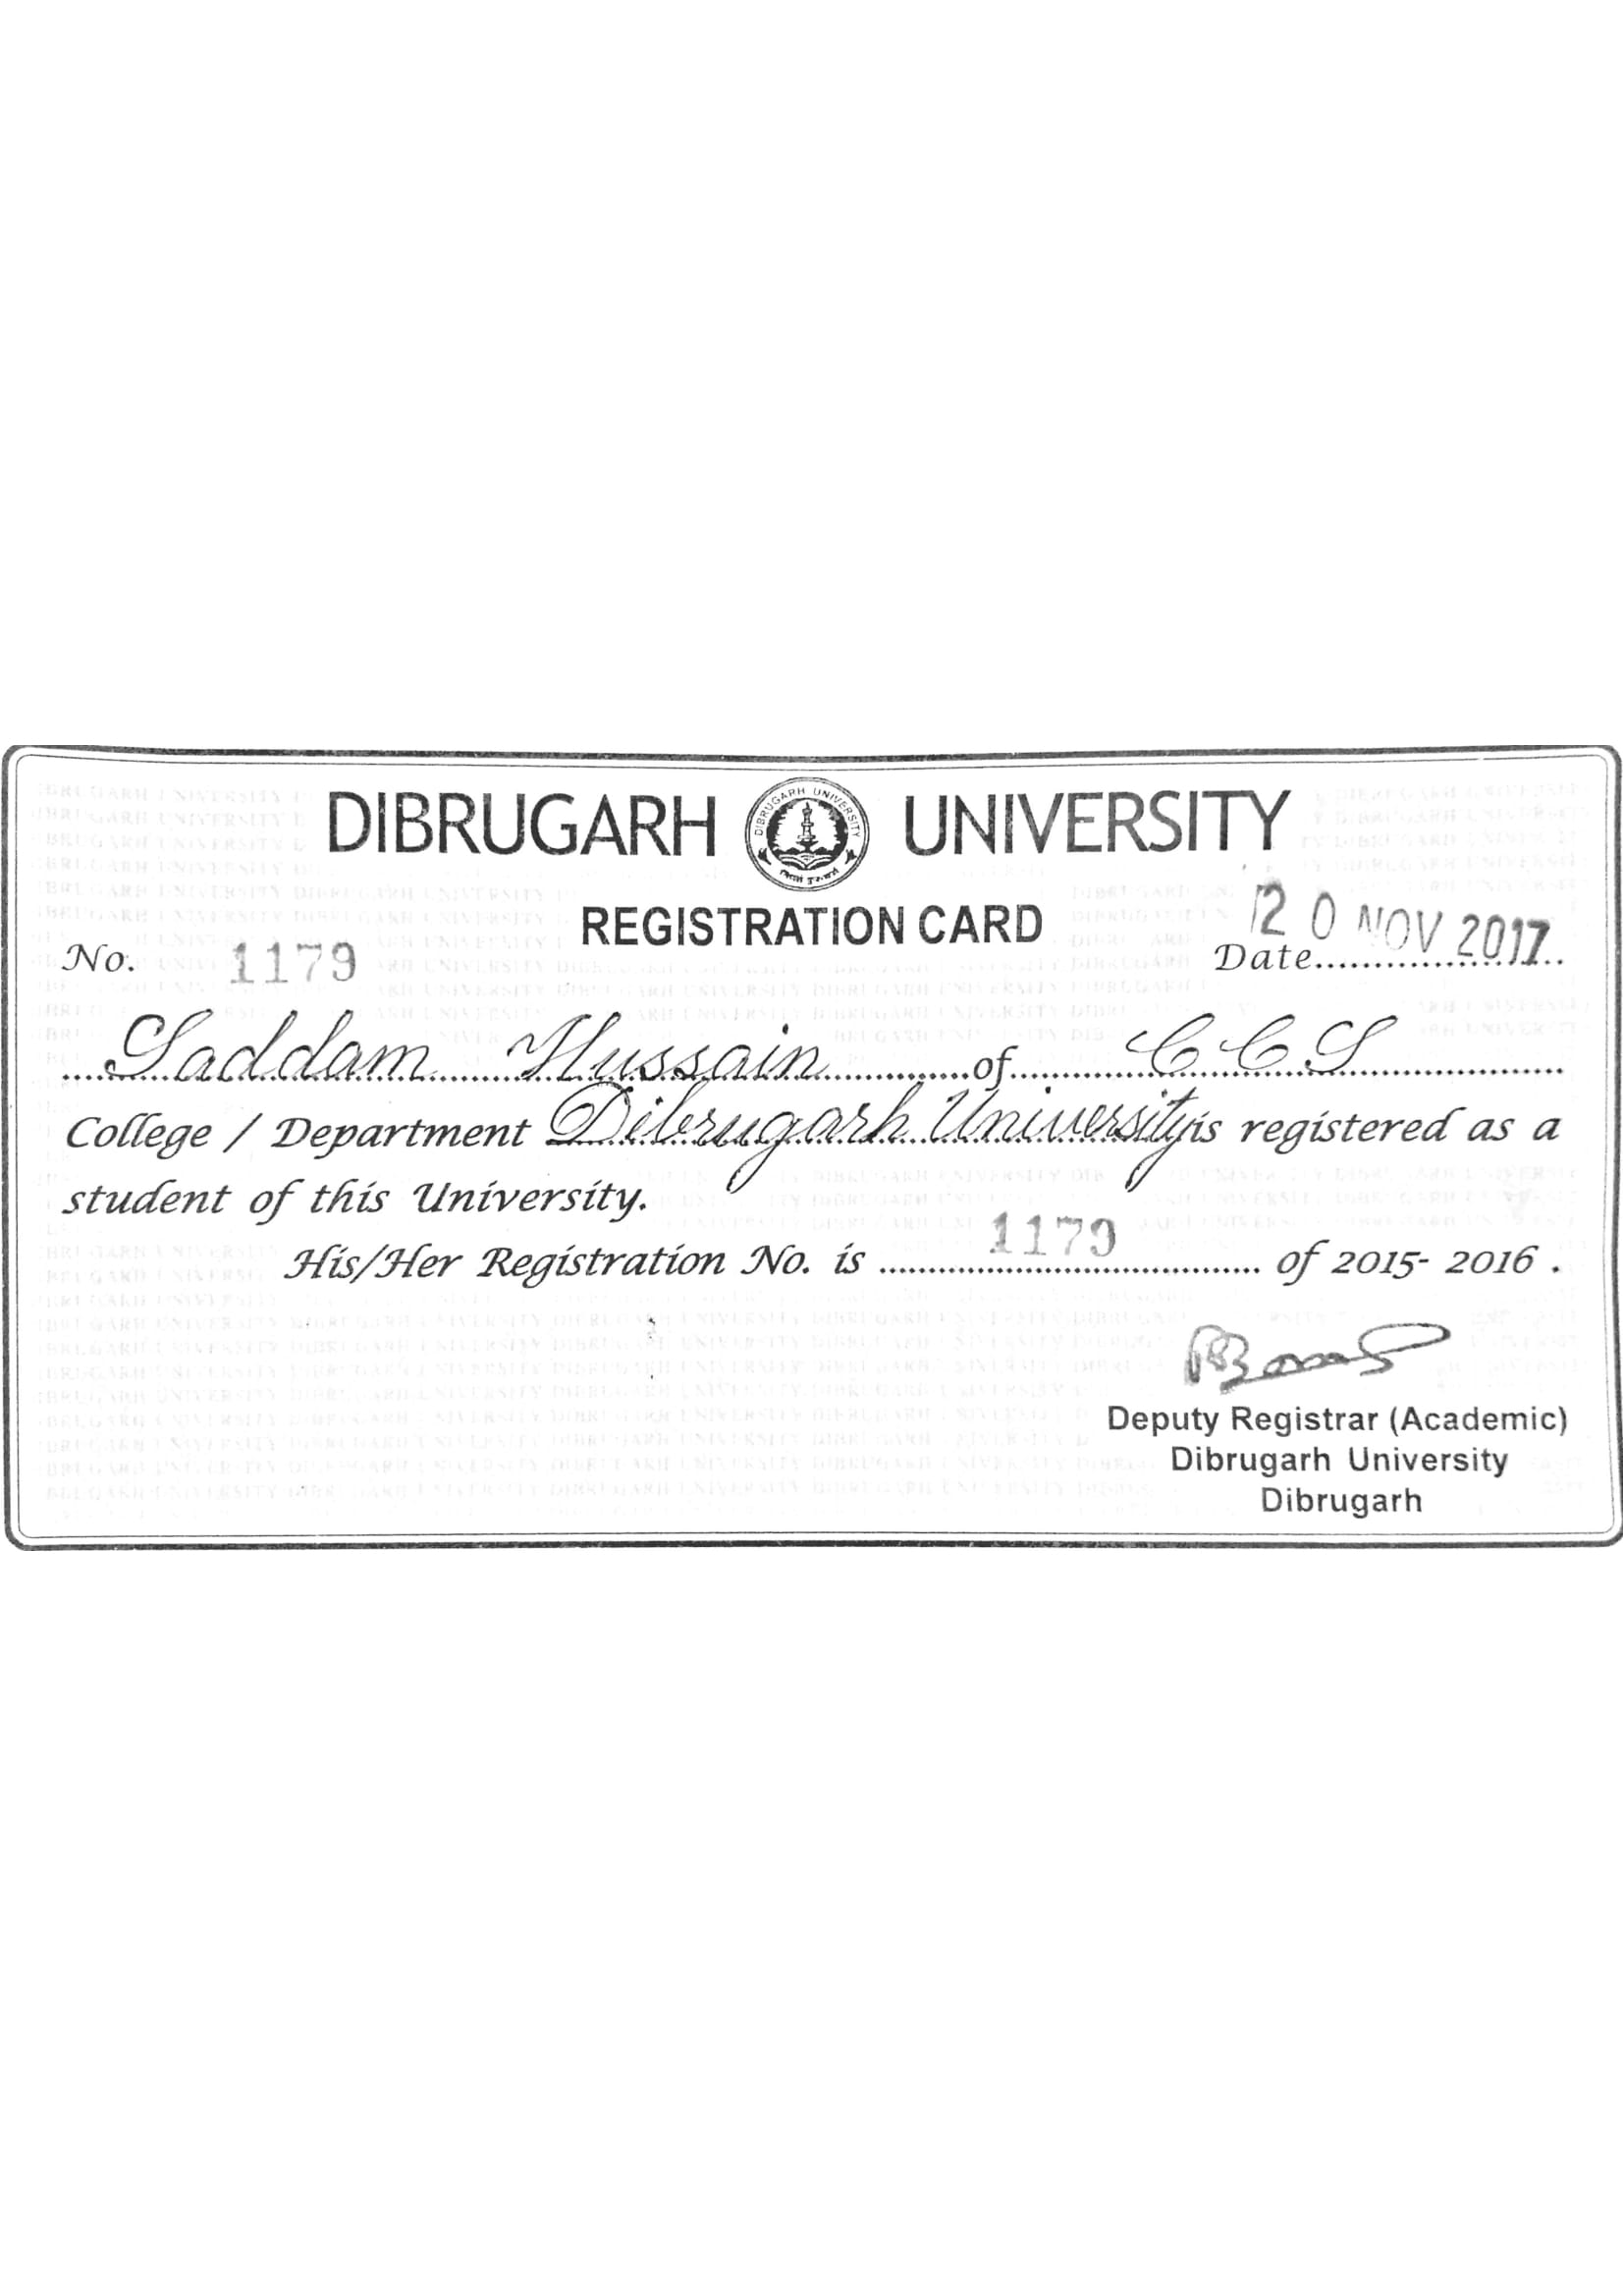 DIBRUGARH UNIVERSITY
DIBRUGARH UNIVERSITY
REGISTRATION CARD
No. 1179
Date 20 NOV 2017
Saddam Hussain of CCS
College / Department Dibrugarh University is registered as a
student of this University.
His/Her Registration No. is 1179 of 2015- 2016 .
Deputy Registrar (Academic)
Dibrugarh University
Dibrugarh